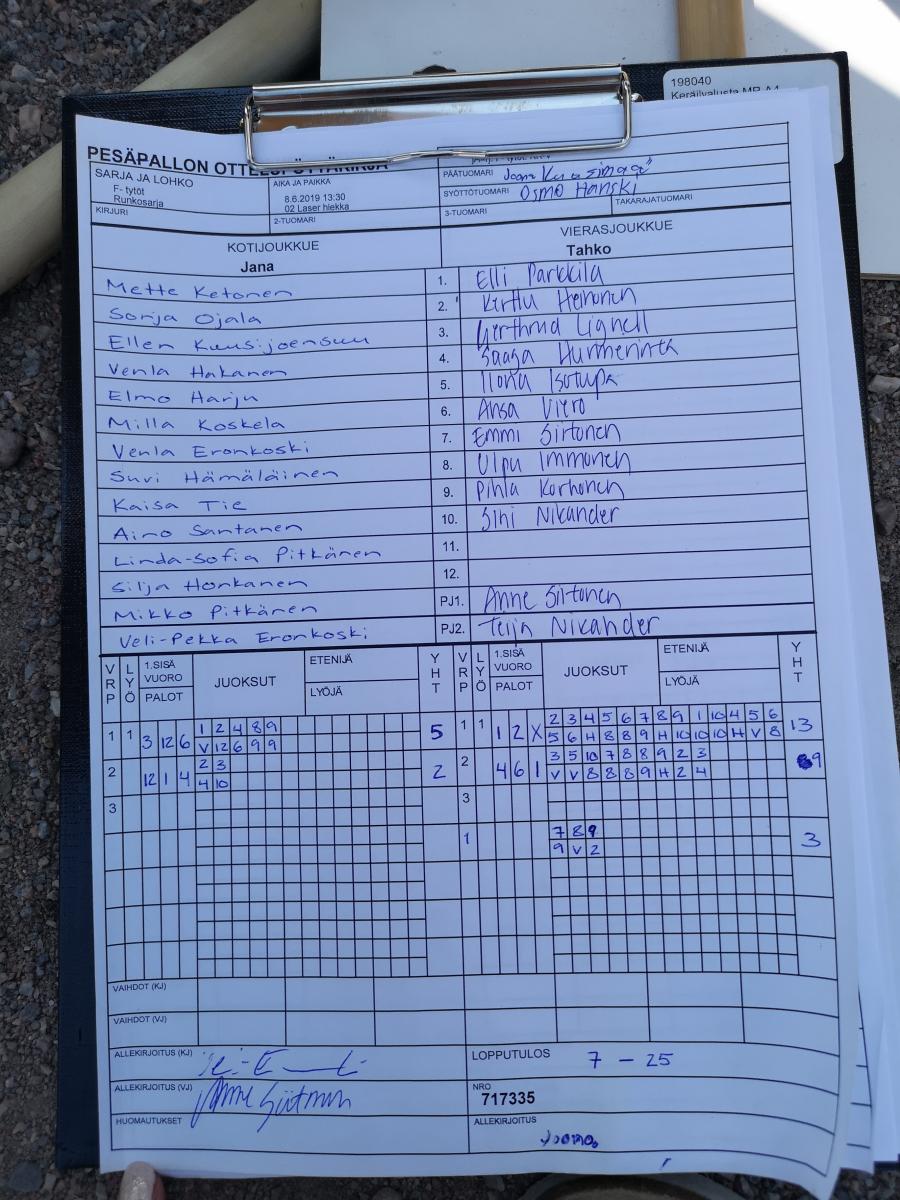 198040
Keräilyalusta MP A4
PESÄPALLON
SARJA JA LOHKO
F- tytöt
Runkosarja
KIRJURI
AIKA JA PAIKKA
8.6.2019 13:30
02 Laser hiekka
2-TUOMARI
PÄÄTUOMARI
SYÖTTÖTUOMARI Osmo Hanski
3-TUOMARI
TAKARAJATUOMARI
KOTIJOUKKUE
Jana
VIERASJOUKKUE
Tahko
Mette Ketonen 1. Elli Parkkila
Sonja Ojala 2. Kerttu Heinonen
Ellen Kuusijoensuu 3. Lignell
Venla Hakanen 4. Saaga Hurmerinta
Elmo Harju 5. Ilona Isotupa
Milla Koskela 6. Ansa Viero
Venla Eronkoski 7. Emmi Siitonen
Suvi Hämäläinen 8. Ulpu Immonen
Kaisa Tie 9. Pihla Korhonen
Aino Santanen 10. Sini Nikander
Linda-Sofia Pitkänen 11.
Silja Honkanen 12.
Mikko Pitkänen PJ1. Anne Siitonen
Veli-Pekka Eronkoski PJ2. Teija Nikander
VRP LYÖ 1.SISÄ VUORO PALOT JUOKSUT ETENIJÄ LYÖJÄ YHT VRP LYÖ 1.SISÄ VUORO PALOT JUOKSUT ETENIJÄ LYÖJÄ YHT
1 2 4 8 9 2 3 4 5 6 7 8 9 1 10 4 5 6
1 1 3 12 6 5 1 1 1 2 X 13
V 12 6 9 9 5 6 H 8 8 9 H 10 10 10 H V 8
2 3 3 5 10 7 8 8 9 2 3
2 12 1 4 2 2 4 6 1 9
4 10 V V 8 8 8 9 H 2 4
3 3
7 8 9
1 3
9 V 2
VAIHDOT (KJ)
VAIHDOT (VJ)
ALLEKIRJOITUS (KJ)
LOPPUTULOS 7 - 25
ALLEKIRJOITUS (VJ) Anne Siitonen
NRO
717335
HUOMAUTUKSET
ALLEKIRJOITUS